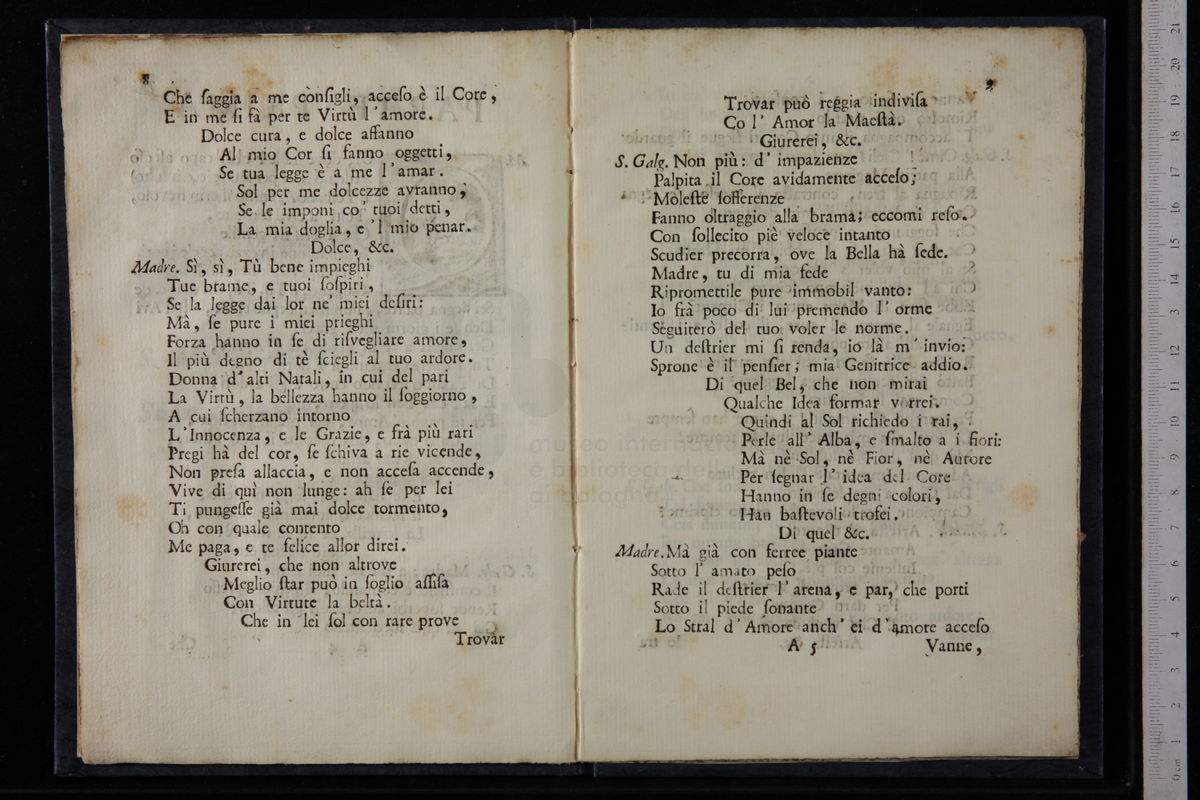 8
Che ſaggia a me conſigli, acceſo è il Core,
E in me ſi fà per te Virtù l'amore.
Dolce cura, e dolce affanno
Al mio Cor ſi fanno oggetti,
Se tua legge è a me l'amar.
Sol per me dolcezze avranno,
Se le imponi co' tuoi detti,
La mia doglia, e 'l mio penar.
Dolce, &c.
Madre. Sì, sì, Tù bene impieghi
Tue brame, e tuoi ſoſpiri,
Se la legge dai lor ne' miei deſiri:
Mà, ſe pure i miei prieghi
Forza hanno in ſe di riſvegliare amore,
Il più degno di tè ſciegli al tuo ardore.
Donna d'alti Natali, in cui del pari
La Virtù, la bellezza hanno il ſoggiorno,
A cui ſcherzano intorno
L'Innocenza, e le Grazie, e frà più rari
Pregi hà del cor, ſe ſchiva a rie vicende,
Non preſa allaccia, e non acceſa accende,
Vive di quì non lunge: ah ſe per lei
Ti pungeſſe già mai dolce tormento,
Oh con quale contento
Me paga, e te felice allor direi.
Giurerei, che non altrove
Meglio ſtar può in ſoglio aſſiſa
Con Virtute la beltà.
Che in lei ſol con rare prove
Trovar
9
Trovar può reggia indiviſa
Co l' Amor la Maeſtà.
Giurerei, &c.
S. Galg. Non più: d' impazienze
Palpita il Core avidamente acceſo;
Moleſte ſofferenze
Fanno oltraggio alla brama; eccomi reſo.
Con ſollecito piè veloce intanto
Scudier precorra, ove la Bella hà ſede.
Madre, tu di mia fede
Ripromettile pure immobil vanto:
Io frà poco di lui premendo l' orme
Seguiterò del tuo voler le norme.
Un deſtrier mi ſi renda, io là m' invio:
Sprone è il penſier; mia Genitrice addio.
Di quel Bel, che non mirai
Qualche Idea formar vorrei.
Quindi al Sol richiedo i rai,
Perle all' Alba, e ſmalto a i fiori:
Mà nè Sol, nè Fior, nè Aurore
Per ſegnar l' idea del Core
Hanno in ſe degni colori,
Han baſtevoli trofei.
Di quel &c.
Madre. Mà già con ferree piante
Sotto l' amato peſo
Rade il deſtrier l' arena, e par, che porti
Sotto il piede ſonante
Lo Stral d' Amore anch' ei d' amore acceſo
A 5 Vanne,